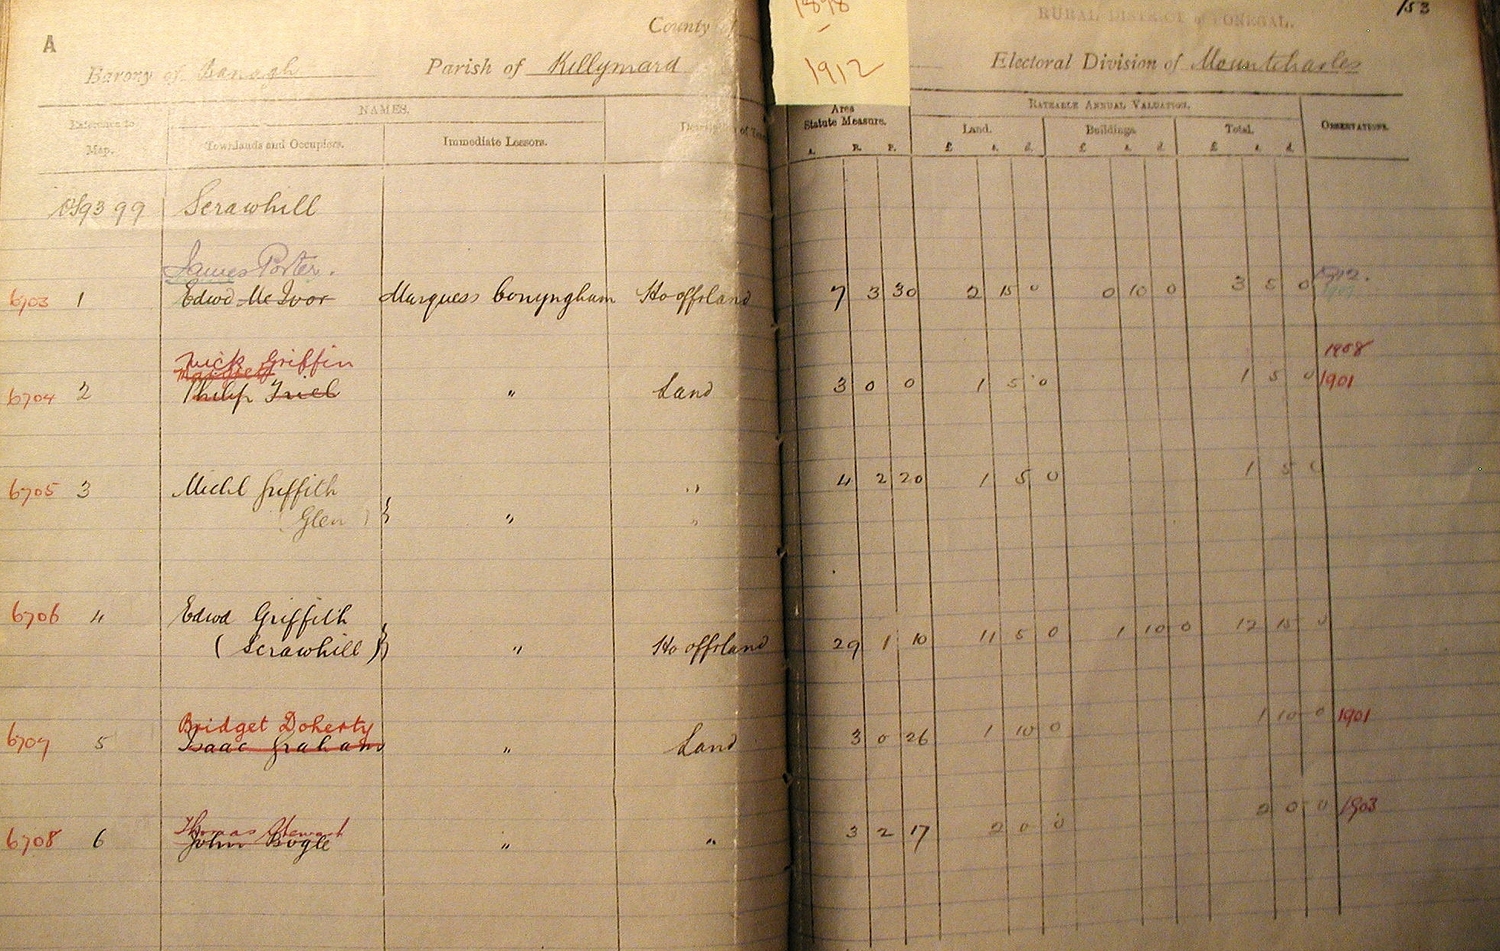 1898
-
1912
153
A
County of
RURAL DISTRICT of DONEGAL.
Barony of Banagh Parish of Killymard Electoral Division of Mountcharles
Reference to Map.
NAMES.
Townlands and Occupiers.
Immediate Lessors.
Description of
Area Statute Measure.
RATEABLE ANNUAL VALUATION.
Land.
Buildings.
Total.
OBSERVATIONS.
A. R. P. £ s. d. £ s. d. £ s. d.
OS 93 99 Scrawhill
James Porter. 1912.
6703 1 Edwd McIvor Marquess Conyngham Ho offs land 7 3 30 2 15 0 0 10 0 3 5 0
Mick Griffin 1908
Margret
6704 2 Philip Friel " Land 3 0 0 1 5 0 1 5 0 1901
6705 3 Michl Griffith " 4 2 20 1 5 0 1 5 0
(Glen) } " "
6706 4 Edwd Griffith
(Scrawhill) } " Ho offs land 29 1 10 11 5 0 1 10 0 12 15 0
Bridget Doherty 1 10 0 1901
6707 5 Isaac Graham " Land 3 0 26 1 10 0
Thomas Stewart 2 0 0 1903
6708 6 John Bogle " " 3 2 17 2 0 0